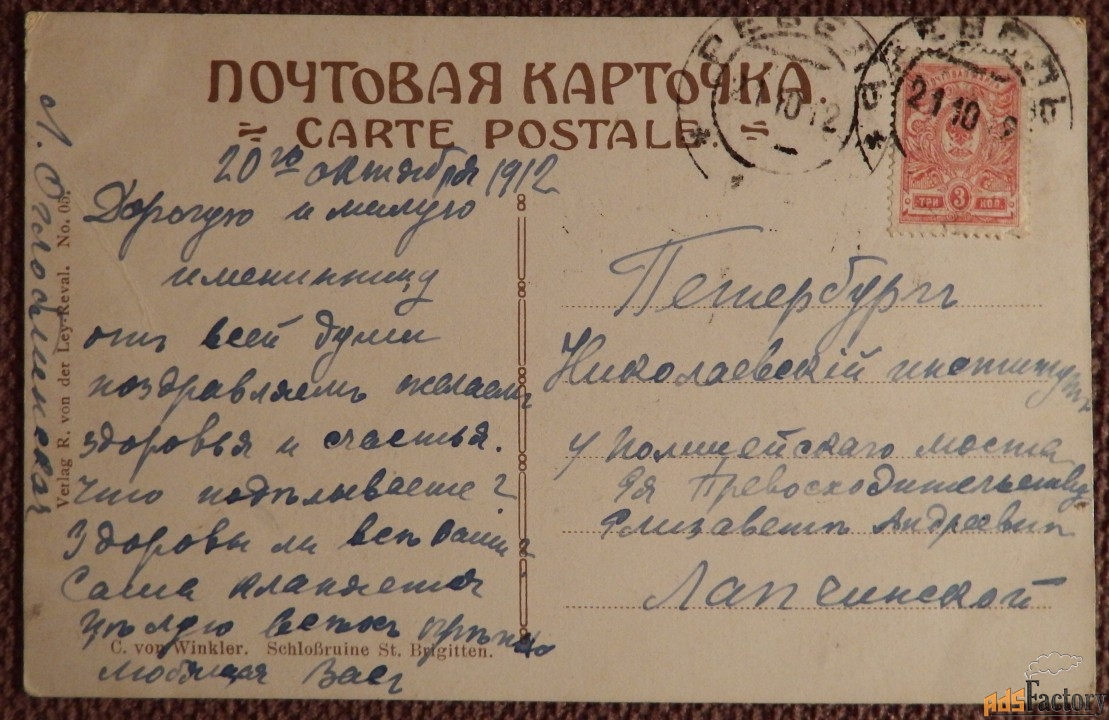 ПОЧТОВАЯ КАРТОЧКА.
CARTE POSTALE.
21 10 12
21 10 12
ТРИ 3 КОП.
20го октября 1912
Дорогую и милую
именинницу
отъ всей души
поздравляемъ желаемъ
здоровья и счастья.
Что подѣлываете?
Здоровы ли всѣ Ваши?
Саша кланяется
Цѣлую всѣхъ крѣпко
любящая Васъ
Verlag R. von der Ley-Reval. No. 05.
C. von Winkler. Schloßruine St. Brigitten.
Петербургъ
Николаевскій институтъ
у Полицейскаго моста
Ея Превосходительству
Елизаветѣ Андреевнѣ
Лапчинской
AdsFactory